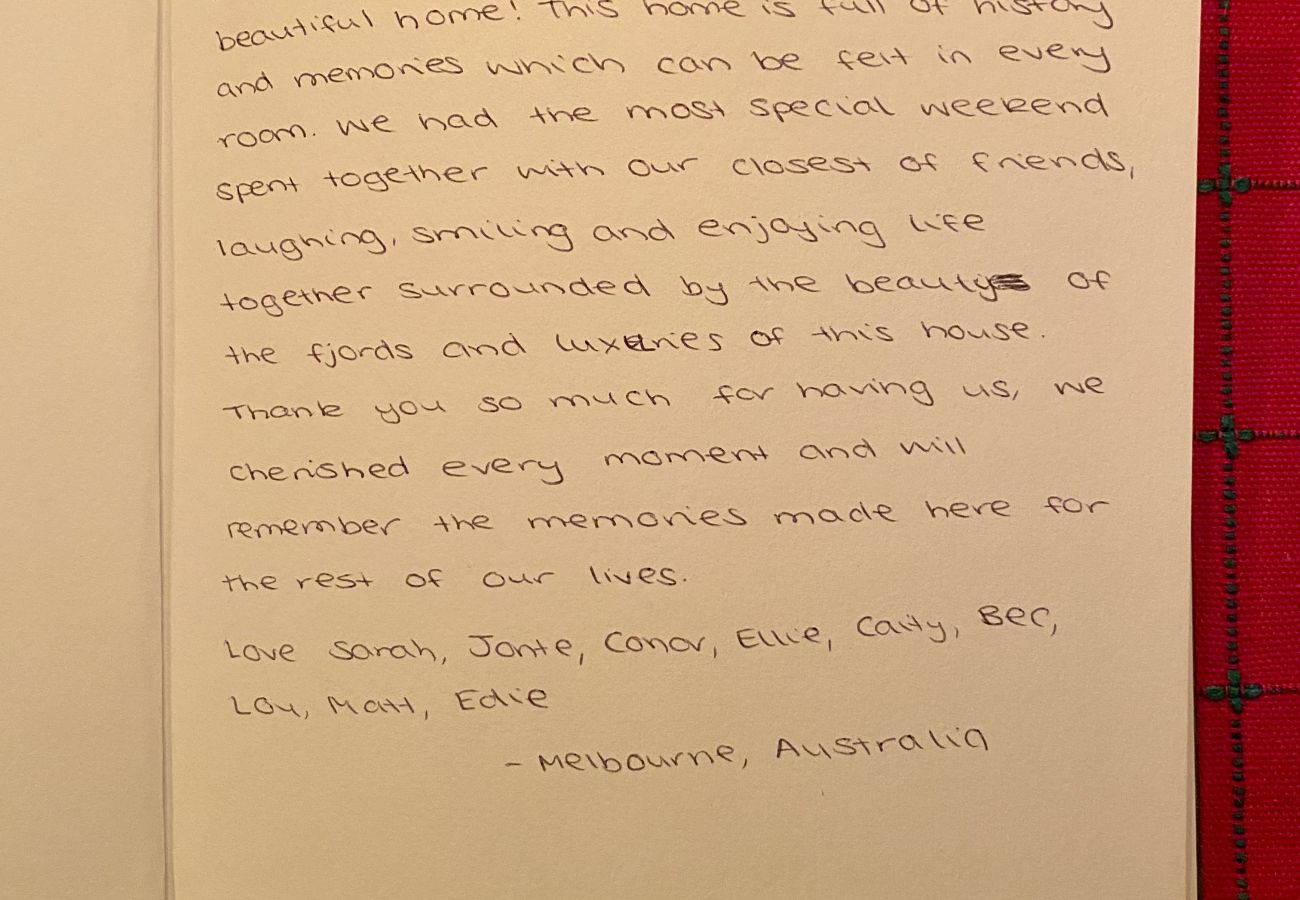 beautiful home! This home is full of history
and memories which can be felt in every
room. We had the most special weekend
spent together with our closest of friends,
laughing, smiling and enjoying life
together surrounded by the beauty of
the fjords and luxuries of this house.
Thank you so much for having us, we
cherished every moment and will
remember the memories made here for
the rest of our lives.
Love Sarah, Jonte, Conor, Ellie, Caity, Bec,
Lou, Matt, Edie
- Melbourne, Australia